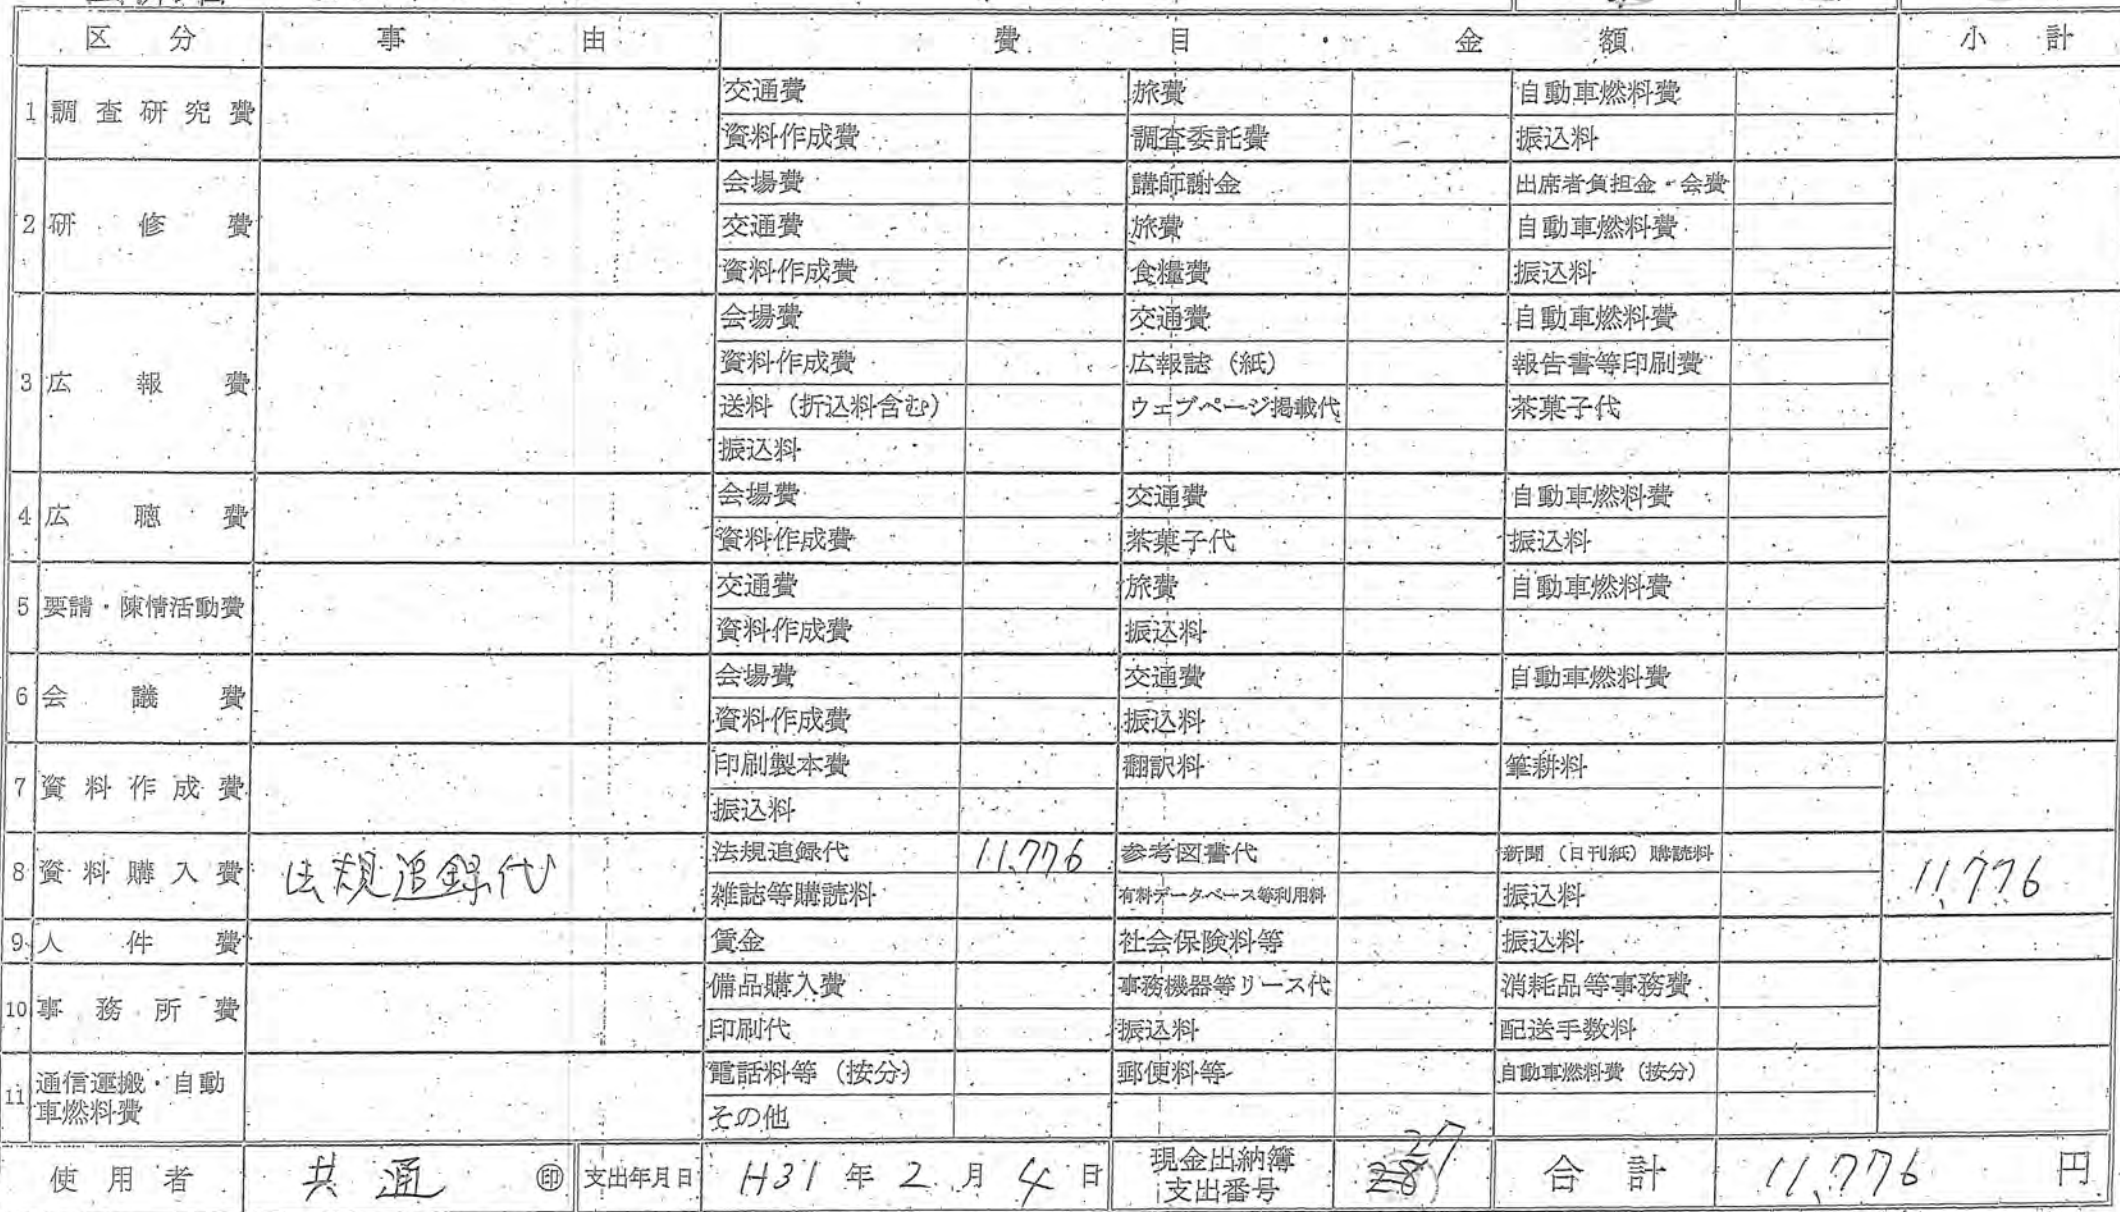 区 分 事 由 費 目 ・ 金 額 小 計
1 調査研究費 交通費 旅費 自動車燃料費
資料作成費 調査委託費 振込料
2 研修費 会場費 講師謝金 出席者負担金・会費
交通費 旅費 自動車燃料費
資料作成費 食糧費 振込料
3 広報費 会場費 交通費 自動車燃料費
資料作成費 広報誌（紙） 報告書等印刷費
送料（折込料含む） ウェブページ掲載代 茶菓子代
振込料
4 広聴費 会場費 交通費 自動車燃料費
資料作成費 茶菓子代 振込料
5 要請・陳情活動費 交通費 旅費 自動車燃料費
資料作成費 振込料
6 会議費 会場費 交通費 自動車燃料費
資料作成費 振込料
7 資料作成費 印刷製本費 翻訳料 筆耕料
振込料
8 資料購入費 法規追録代 法規追録代 11,776 参考図書代 新聞（日刊紙）購読料 11,776
雑誌等購読料 有料データベース等利用料 振込料
9 人件費 賃金 社会保険料等 振込料
10 事務所費 備品購入費 事務機器等リース代 消耗品等事務費
印刷代 振込料 配送手数料
11 通信運搬・自動車燃料費 電話料等（按分） 郵便料等 自動車燃料費（按分）
その他
使用者 共通 ㊞ 支出年月日 H31年2月4日 現金出納簿支出番号 28 27 合計 11,776 円